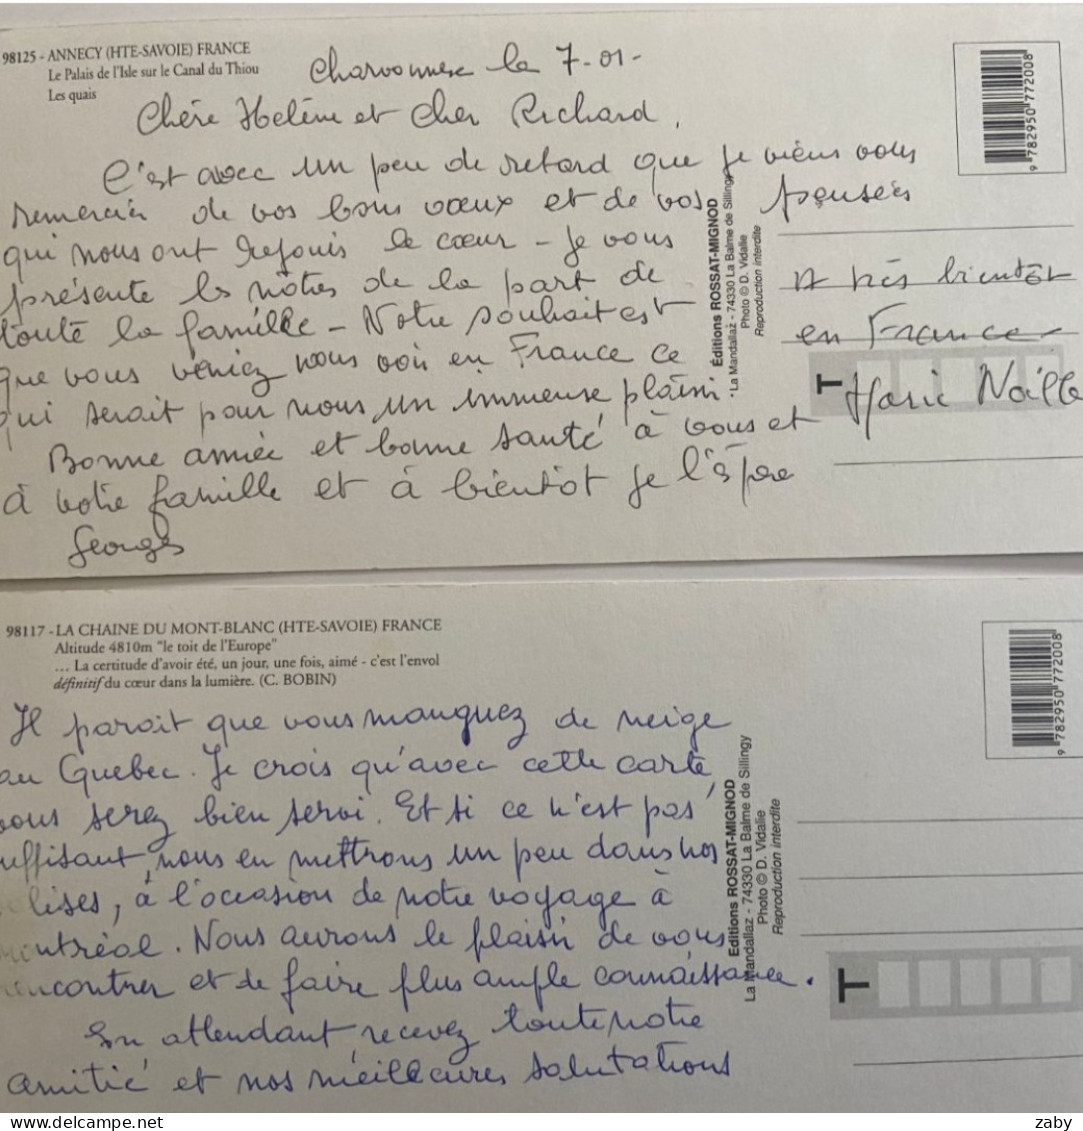 98125 - ANNECY (HTE-SAVOIE) FRANCE
Le Palais de l'Isle sur le Canal du Thiou
Les quais
Charvonnex le 7-01-
Chère Hélène et Cher Richard,
C'est avec un peu de retard que je viens vous
remercier de vos bons vœux et de vos pensées
qui nous ont réjouis le cœur - Je vous
présente les nôtres de la part de
toute la famille - Notre souhait est
que vous veniez nous voir en France ce
qui serait pour nous un immense plaisir.
Bonne année et bonne santé à vous et
à votre famille et à bientôt je l'espère
Georges
A très bientôt
en France
Marie Noëlle
Éditions ROSSAT-MIGNOD
La Mandallaz - 74330 La Balme de Sillingy
Photo © D. Vidalie
Reproduction interdite
T
9 782950 772008
98117 - LA CHAINE DU MONT-BLANC (HTE-SAVOIE) FRANCE
Altitude 4810m "le toit de l'Europe"
... La certitude d'avoir été, un jour, une fois, aimé - c'est l'envol
définitif du cœur dans la lumière. (C. BOBIN)
Il parait que vous manquez de neige
au Quebec. Je crois qu'avec cette carte
vous serez bien servi. Et si ce n'est pas
suffisant, nous en mettrons un peu dans nos
valises, à l'occasion de notre voyage à
Montréal. Nous aurons le plaisir de vous
rencontrer et de faire plus ample connaissance.
En attendant, recevez toute notre
amitié et nos meilleures salutations
Editions ROSSAT-MIGNOD
La Mandallaz - 74330 La Balme de Sillingy
Photo © D. Vidalie
Reproduction interdite
T
9 782950 772008
delcampe.net
zaby